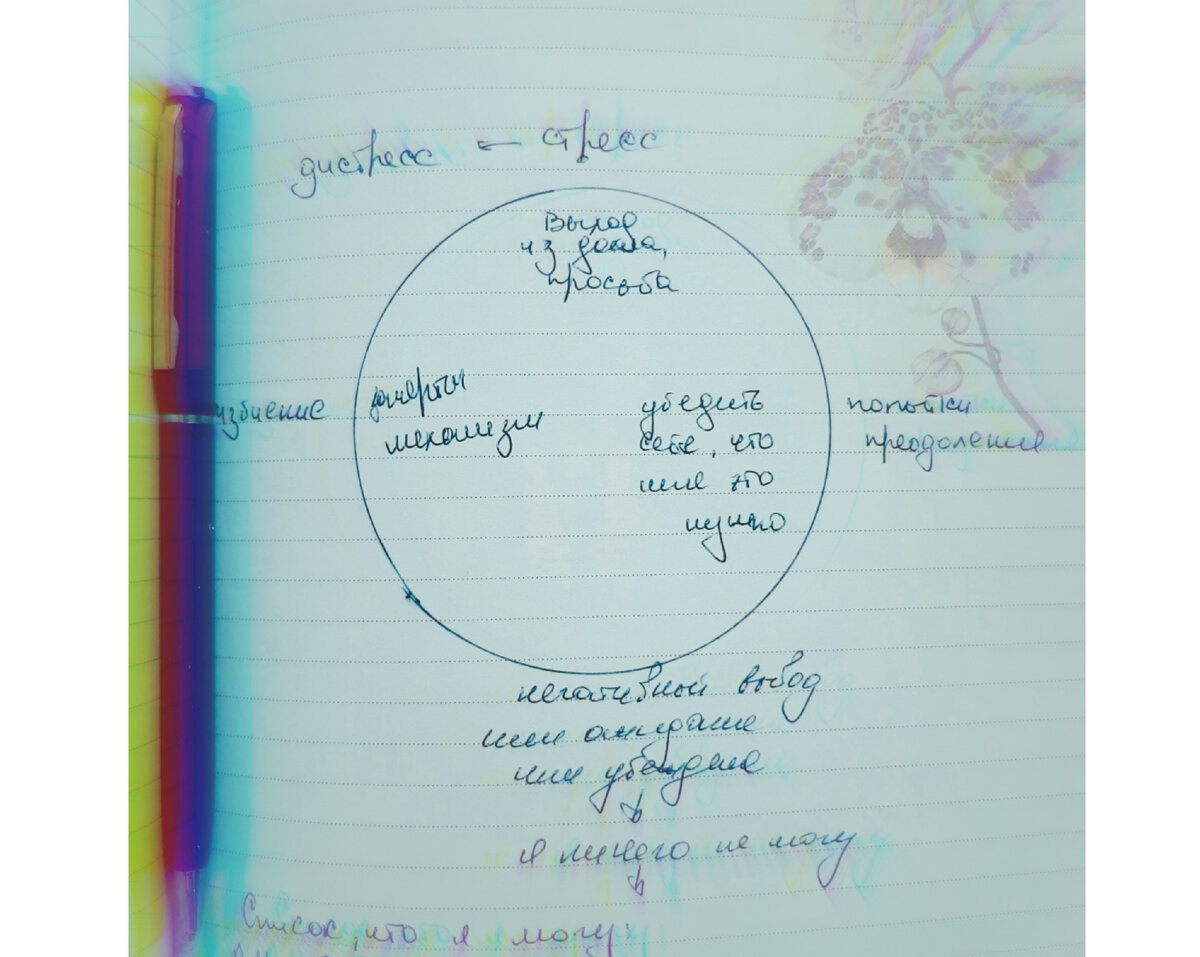 дистресс ← стресс
Выход
из дома,
просьба
избиение
механизм
убедить
себе, что
мне это
нужно
попытки
преодоления
негативный вывод
или ожидание
или убеждение
↓
я ничего не могу
↓
Список, что я могу: